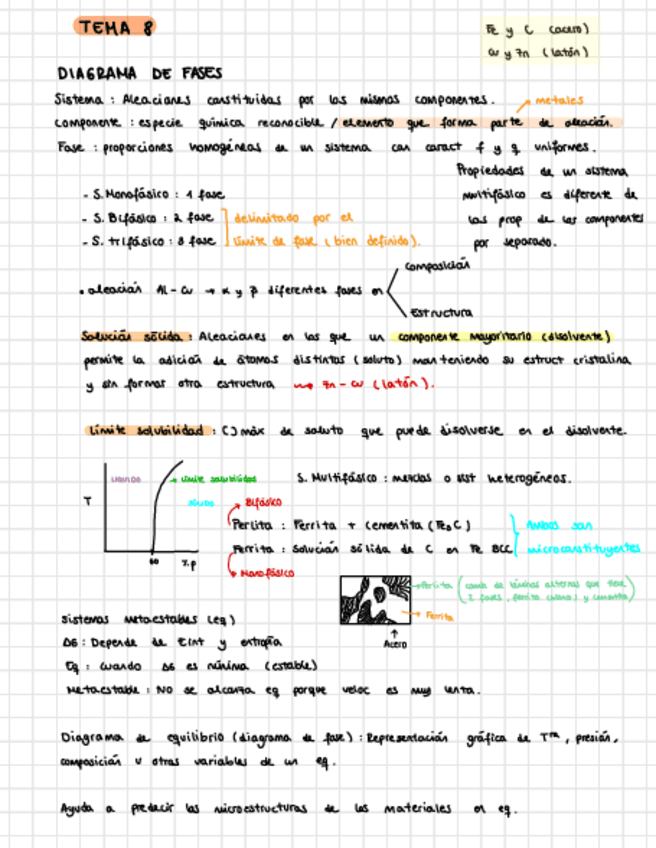 TEMA 8
Fe y C (acero)
Cu y Zn (latón)
DIAGRAMA DE FASES
Sistema : Aleaciones constituidas por los mismos componentes.
metales
Componente : especie química reconocible / elemento que forma parte de aleación.
Fase : proporciones homogéneas de un sistema con caract f y q uniformes.
Propiedades de un sistema
multifásico es diferente de
las prop de los componentes
por separado.
- S. Monofásico : 1 fase
- S. Bifásico : 2 fase
- S. trifásico : 3 fase
delimitado por el
límite de fase (bien definido).
• aleación Al-Cu → α y β diferentes fases en
composición
Estructura
Solución sólida : Aleaciones en las que un componente mayoritario (disolvente)
permite la adición de átomos distintos (soluto) manteniendo su estruct cristalina
y sin formar otra estructura → Zn-Cu (latón).
Límite solubilidad : C) máx de soluto que puede disolverse en el disolvente.
T
Líquido
Límite solubilidad
sólido
S. Multifásico : mezclas o sist heterogéneos.
Bifásico
Perlita : Ferrita + cementita (Fe3C)
Ferrita : Solución sólida de C en Fe BCC
Ambos son
microconstituyentes
Monofásico
Perlita (consta de láminas alternas que tiene
2 fases, ferrita y cementita)
Ferrita
Acero
Sistemas Metaestables (eq)
ΔG : Depende de Eint y entropía
Eq : cuando ΔG es mínima (estable)
Metaestable : NO se alcanza eq porque veloc es muy lenta.
Diagrama de equilibrio (diagrama de fase) : Representación gráfica de Tra, presión,
composición u otras variables de un eq.
Ayuda a predecir las microestructuras de los materiales en eq.